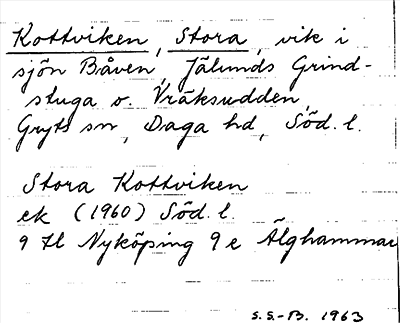 Kottviken, Stora, vik i
sjön Båven, Jälunds Grind-
stuga o. Vräksudden,
Gryts sn, Daga hd, Söd. l.
Stora Kottviken
ek (1960) Söd. l.
9 H Nyköping 9 e Älghammar
S.S.-B. 1963